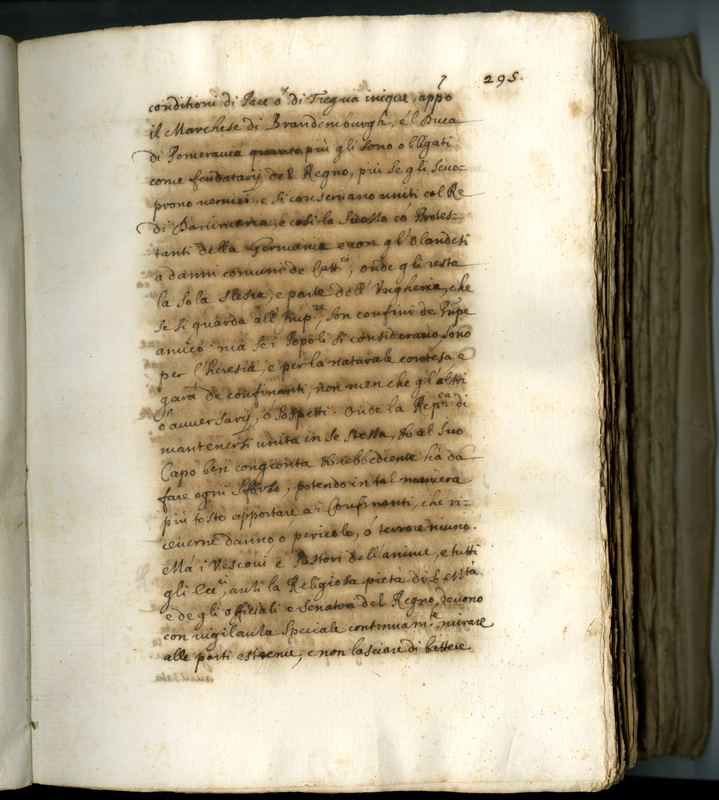 295.
conditioni di Pace ò di Tregua inique, appo
il Marchese di Brandemburgh, e'l Duca
di Pomerania quanto più gli sono obligati
come feudatarij del Regno, più se gli scuo-
prono nemici, e si conservano uniti col Re
di Danimarca, e così la Suetia co Protes-
tanti della Germania e con gl'Olandesi
a danni comuni de Catt.ci, onde gli resta
la sola Slesia, e parte dell'Ungheria, che
se si guarda all'Imp.re, son confini de Prñpe
amico. ma se i Popoli si considerano, sono
per l'heresia, e per la naturale contesa e
gara de confinanti, non men che gl'altri
ò avversarij, ò sospetti. Onde la Rep.ca di
mantenersi unita in se stessa, & al suo
Capo ben congionta & ubbediente hà da
fare ogni sforzo, potendo in tal maniera
più tosto apportare a i Confinanti, che ri-
ceverne danno ò pericolo, ò terrore niuno.
Mà i Vescovi e Pastori dell'anime, e tutti
gli Ecc.ci, anzi la Religiosa pietà di S. M.tà
e de gli officiali e senatori del Regno, devono
con vigilanza speciale continuam.te mirare
alle parti estreme, e non lasciare di battere